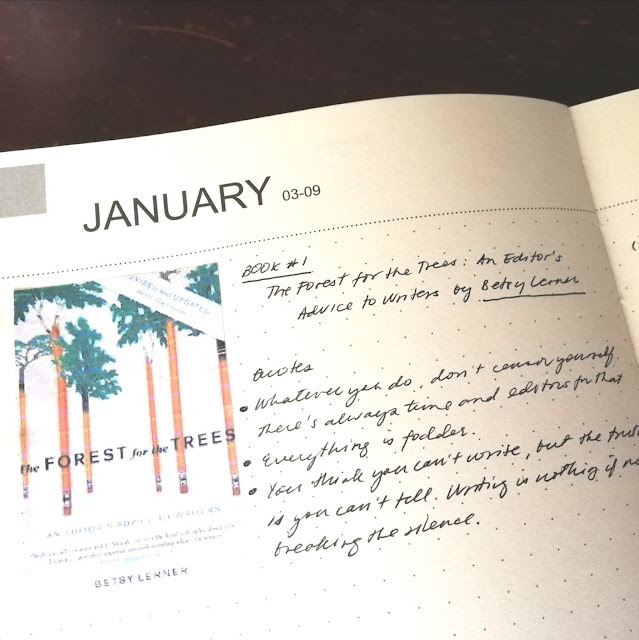 JANUARY 03-09
BOOK #1
The Forest for the Trees: An Editor's
Advice to Writers by Betsy Lerner
Quotes
• Whatever you do, don't censor yourself
There's always time and editors for that
• Everything is fodder.
• You think you can't write, but the truth
is you can't tell. Writing is nothing if no
breaking the silence.
REVISED AND UPDATED
the FOREST for the TREES
AN EDITOR'S ADVICE TO WRITERS
BETSY LERNER